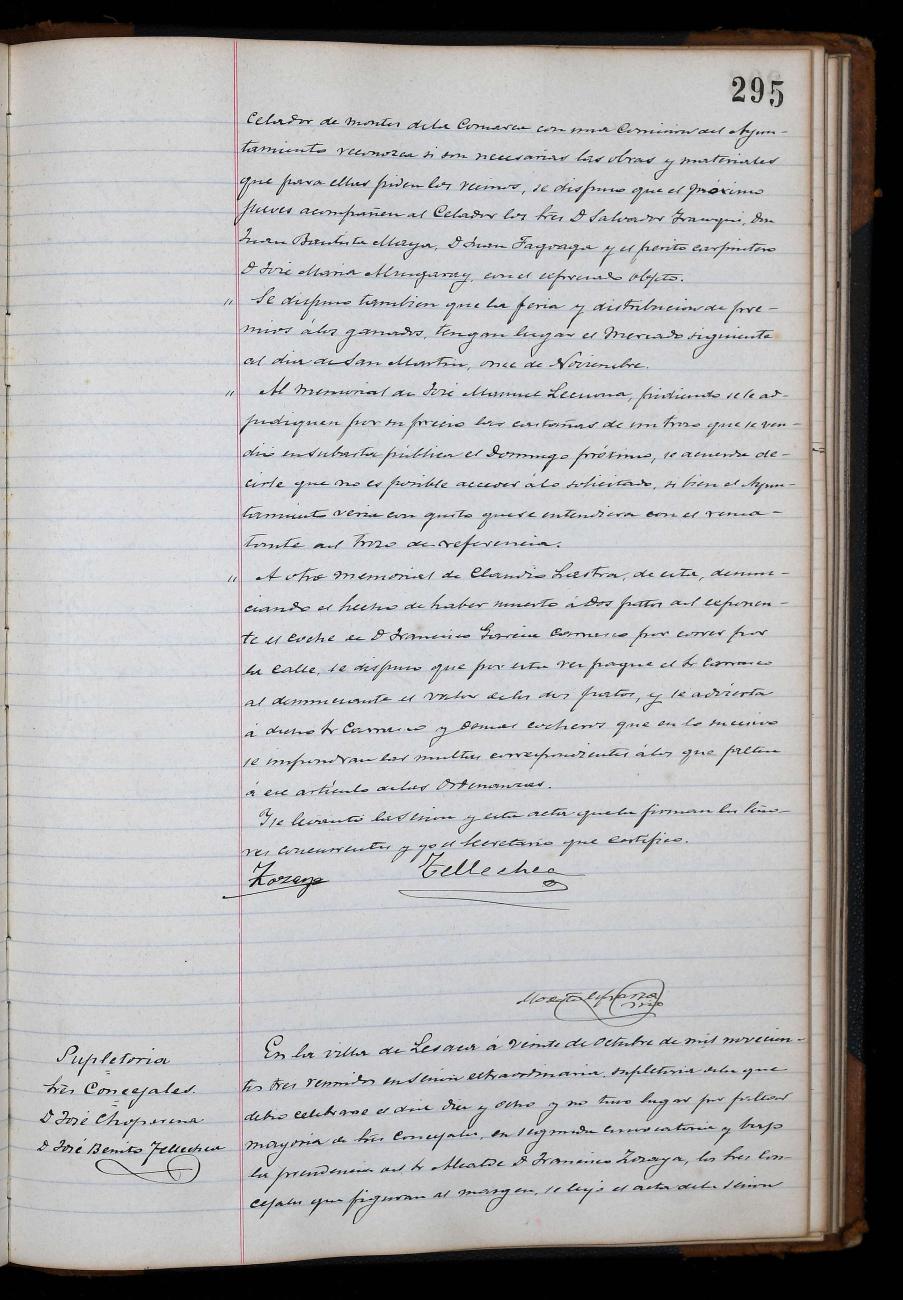 295
Celador de montes de la Comarca con una Comision del Ayun-
tamiento reconozca si son necesarias las obras y materiales
que para ellas piden los vecinos, se dispuso que el próximo
Jueves acompañen al Celador los Sres D Salvador Iranqui, Don
Juan Bautista Maya, D Juan Fagoaga y el perito carpintero
D José Maria Almugaray, con el expresado objeto.
" Se dispuso tambien que la feria y distribucion de pre-
mios á los ganados, tengan lugar el Mercado siguiente
al dia de San Martin, once de Noviembre.
" Al memorial de José Manuel Lecuona, pidiendo se le ad-
judiquen por su precio las castañas de un trozo que se ven-
dió en subasta pública el Domingo próximo, se acuerda de-
cirle que no es posible acceder á lo solicitado, si bien el Ayun-
tamiento veria con gusto que se entendiera con el rema-
tante del trozo de referencia.
" A otro memorial de Claudio Lastra, de esta, denun-
ciando el hecho de haber muerto á dos patos del exponen-
te el coche de D Francisco Carrasco por correr por
la calle, se dispuso que por esta vez pague el Sr Carrasco
al denunciante el valor de los dos patos, y se advierta
á dicho Sr Carrasco y demas cocheros que en lo sucesivo
se impondran las multas correspondientes á los que falten
á ese artículo de las Ordenanzas.
Y se levantó la Sesion y esta acta que la firman los Seño-
res concurrentes y yo el Secretario que certifico.
Zozaya Tellechea
En la villa de Lesaca á veinte de Octubre de mil novecien-
tos tres reunidos en Sesion extraordinaria, supletoria de la que
debió celebrarse el dia diez y ocho y no tuvo lugar por faltar
mayoria de Sres Concejales, en segunda convocatoria y bajo
la presidencia del Sr Alcalde D Francisco Zozaya, los Sres Con-
cejales que figuran al margen, se leyó el acta de la Sesion
Supletoria
Sres Concejales.
D José Choperena
D José Benito Tellechea